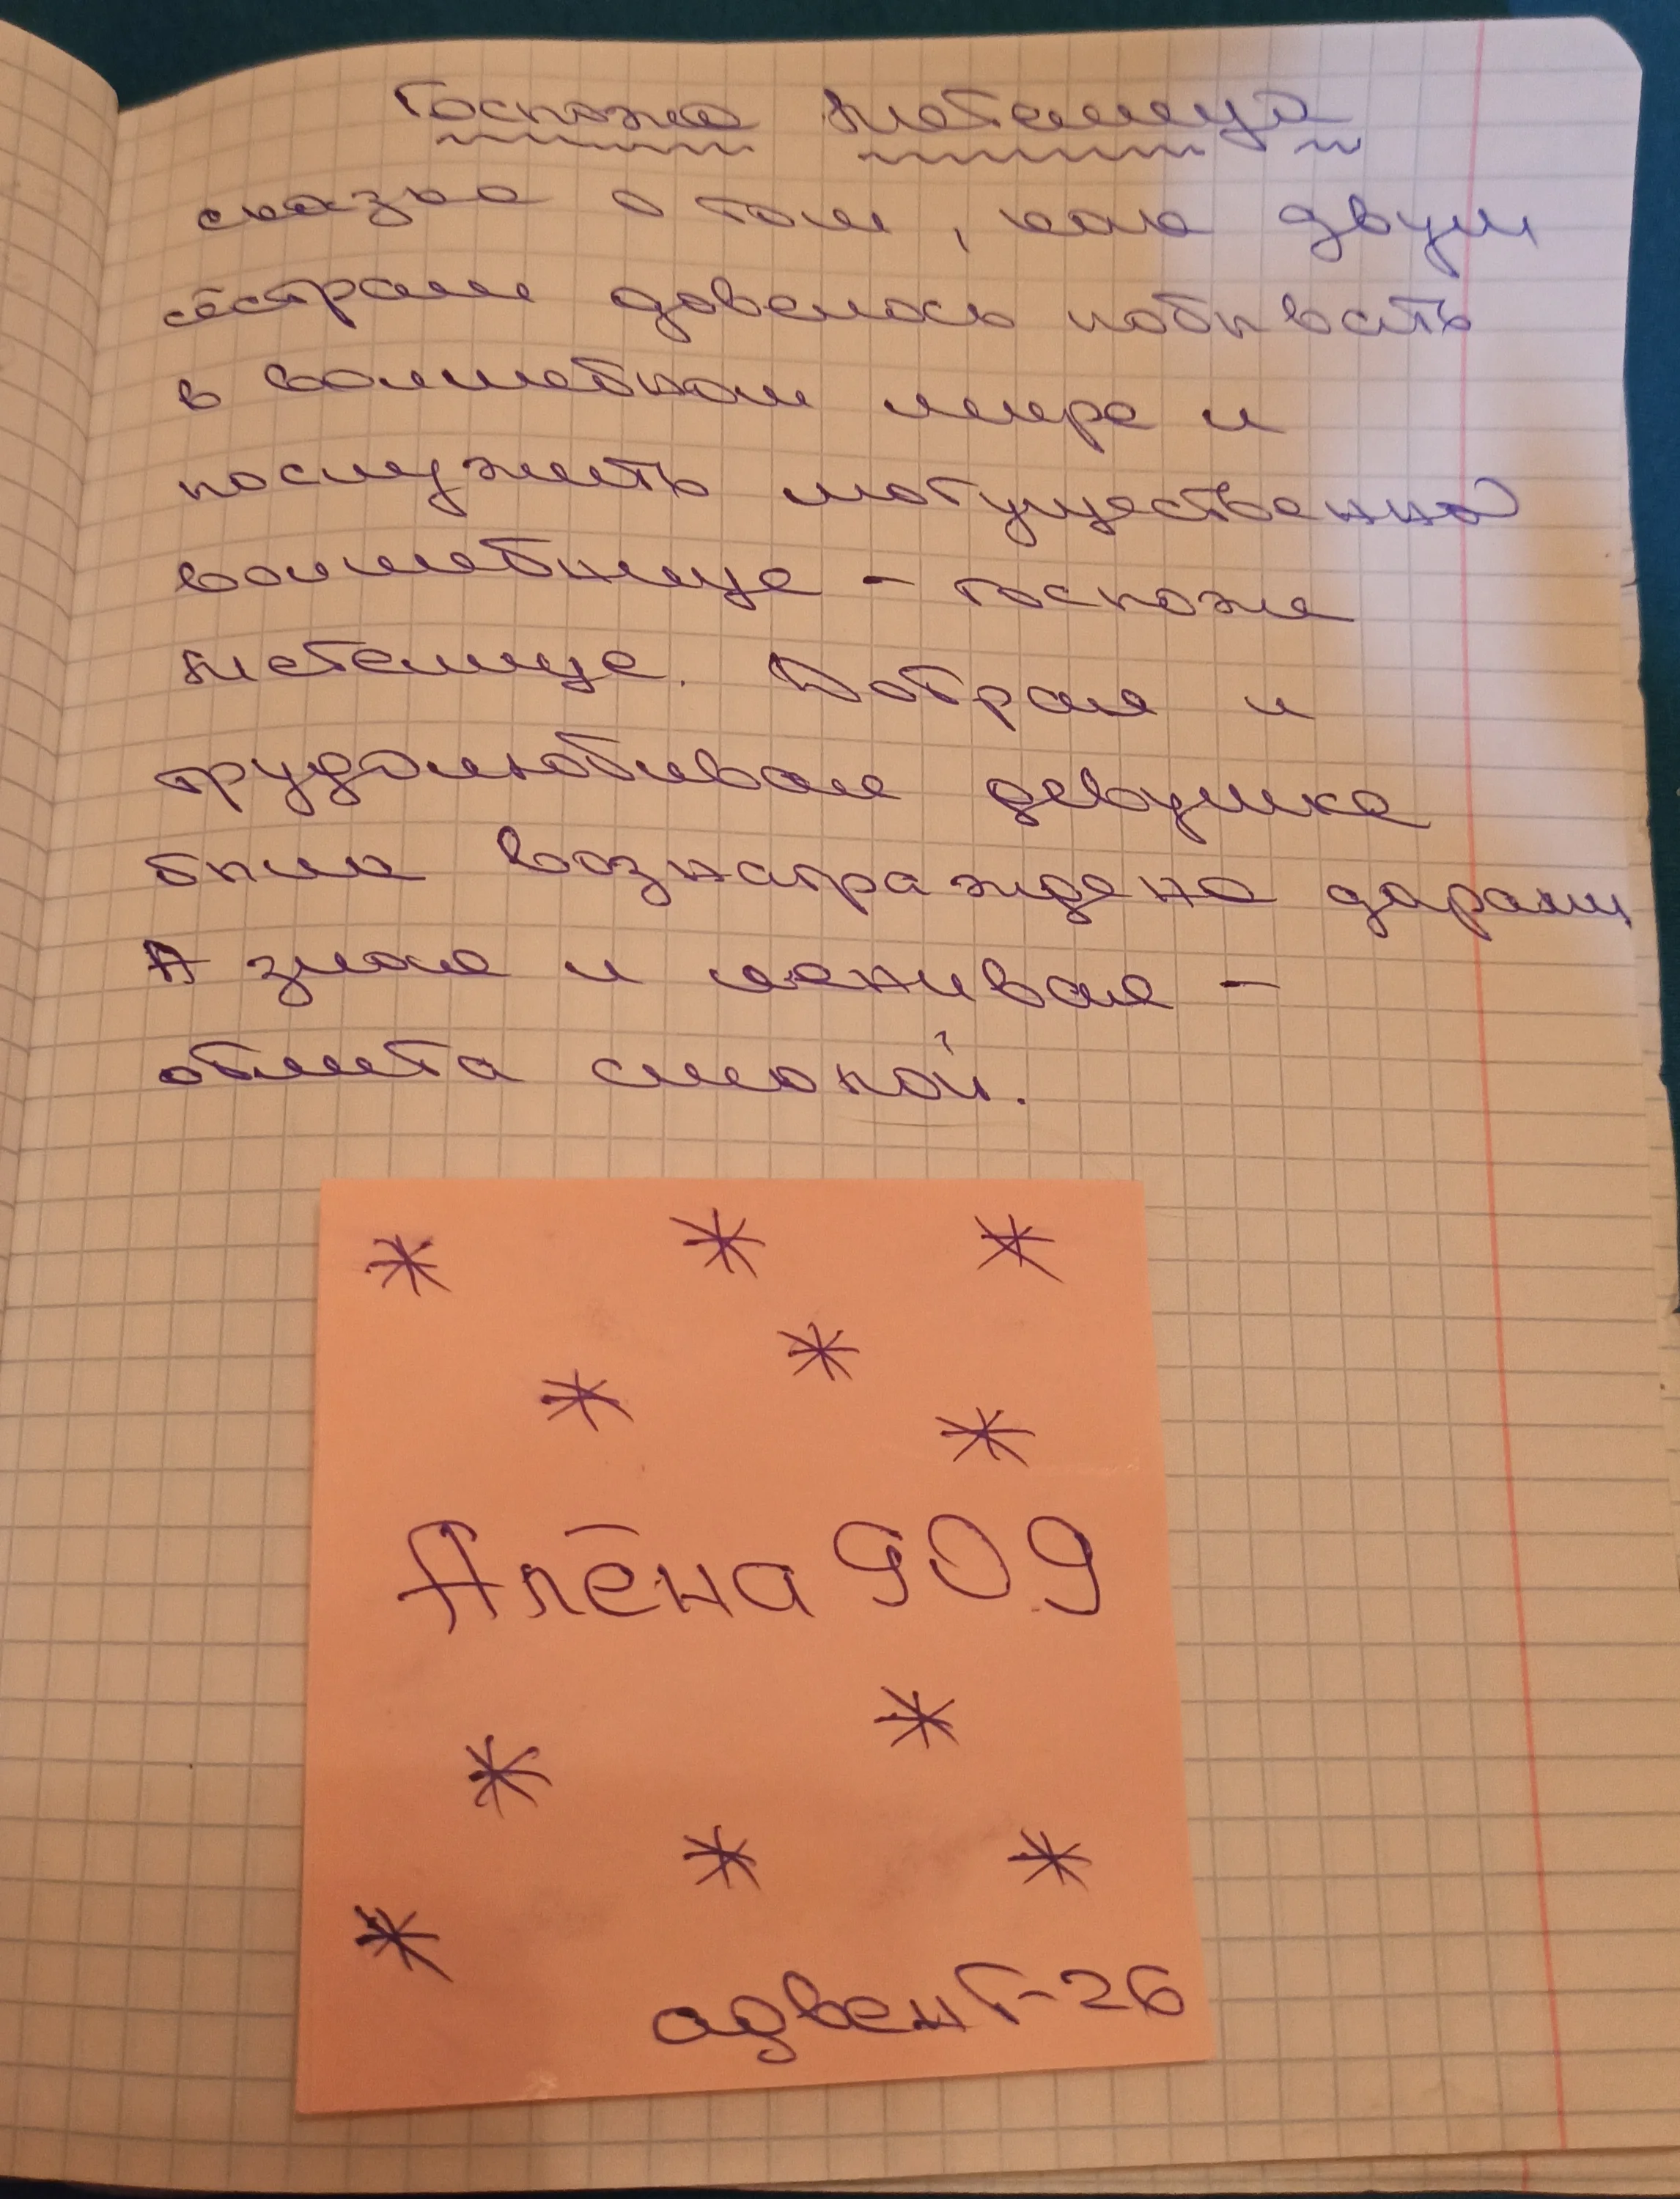 Госпожа Метелица
сказка о том, как двум
сёстрам довелось побывать
в волшебном мире и
послужить могущественной
волшебнице - госпоже
Метелице. Добрая и
трудолюбивая девушка
была вознаграждена дарами
А злая и ленивая -
облита смолой.
Алёна 909
адвент-26